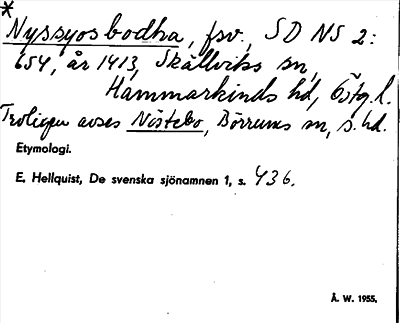 *
Nyssyosbodha, fsv., SD NS 2:
654, år 1413, Skällviks sn,
Hammarkinds hd, Östg. l.
Troligen avses Nöstebo, Börrums sn, s. hd.
Etymologi.
E. Hellquist, De svenska sjönamnen 1, s. 436.
Å. W. 1955.